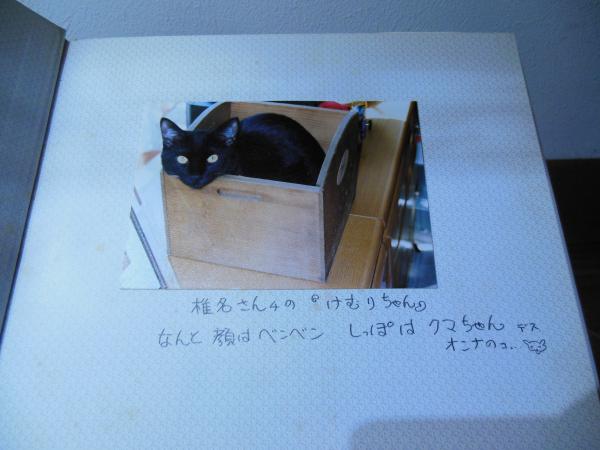 椎名さん4の『けむりちゃん』
なんと 顔は ベンベン しっぽは クマちゃん デス
オンナのコ..